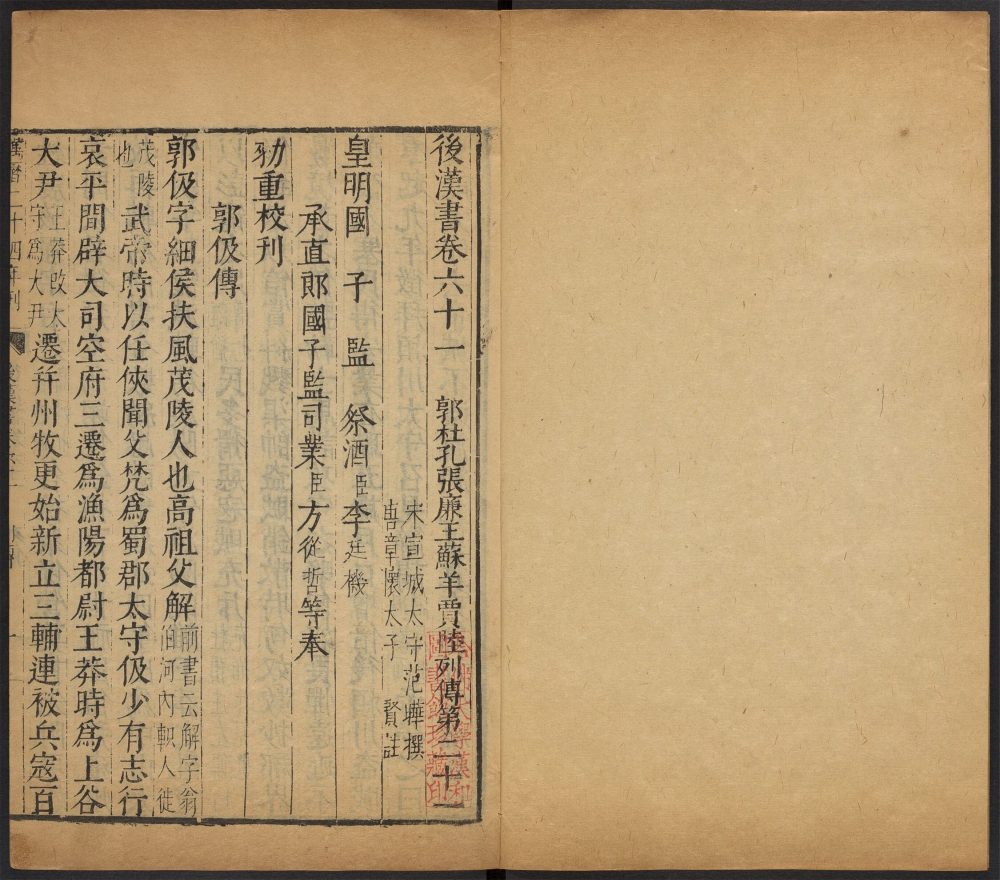 後漢書卷六十一 郭杜孔張廉王蘇羊賈陸列傳第二十一
宋宣城太守范曄撰
唐章懷太子賢註
皇明國子監祭酒臣李廷機
承直郎國子監司業臣方從哲等奉
勑重校刊
郭伋傳
郭伋字細侯扶風茂陵人也高祖父解前書云解字翁伯河內軹人徙
茂陵也武帝時以任俠聞父梵爲蜀郡太守伋少有志行
哀平間辟大司空府三遷爲漁陽都尉王莽時爲上谷
大尹王莽改太守爲大尹遷并州牧更始新立三輔連被兵寇百
萬曆二十四年刊